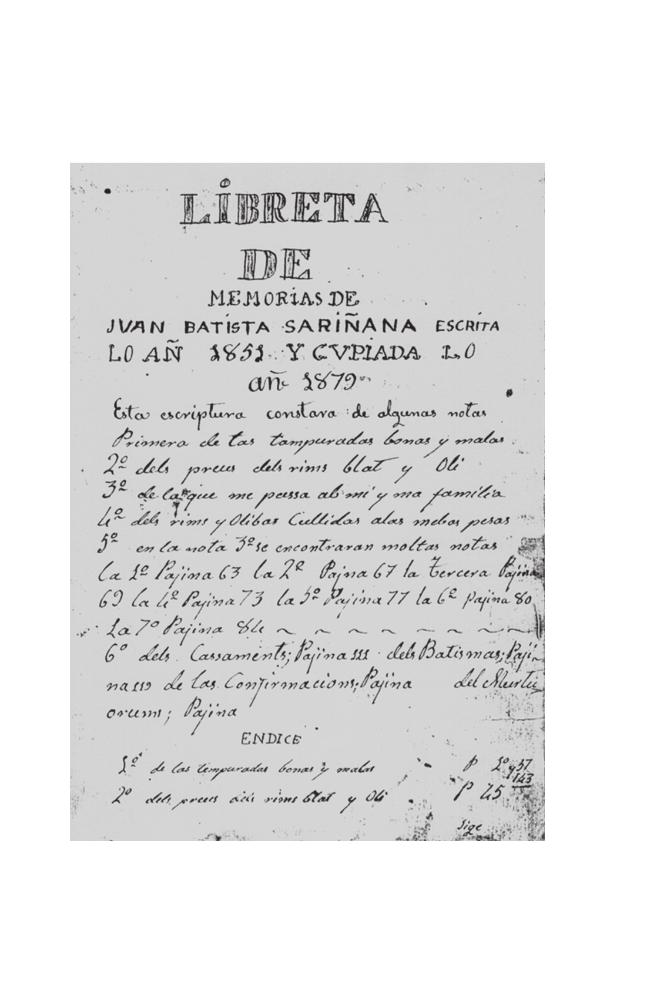 LIBRETA
DE
MEMORIAS DE
JVAN BATISTA SARIÑANA ESCRITA
LO AÑ 1851 Y CVPIADA LO
añ 1879
Esta escriptura constara de algunas notas
Primera de las tampuradas bonas y malas
2º dels preus dels rims blat y Oli
3º de la que me passa ab mi y ma familia
4º dels rims y Olibas Cullidas a las mebas pesas
5º en la nota 3º se encontraran moltas notas
la 1º Pajina 63 la 2º Pajna 67 la tercera Pajina
69 la 4º Pajina 73 la 5º Pajina 77 la 6º Pajina 80
La 7º Pajina 84
6º dels Cassaments; Pajina 111 dels Batismas; Paji
na 119 de las Confirmacions; Pajina del Murtu
orums; Pajina
ENDICE
1º de las tempuradas bonas y malas P 1º y 57
143
2º dels preus dels rims blat y Oli P 45
Sige